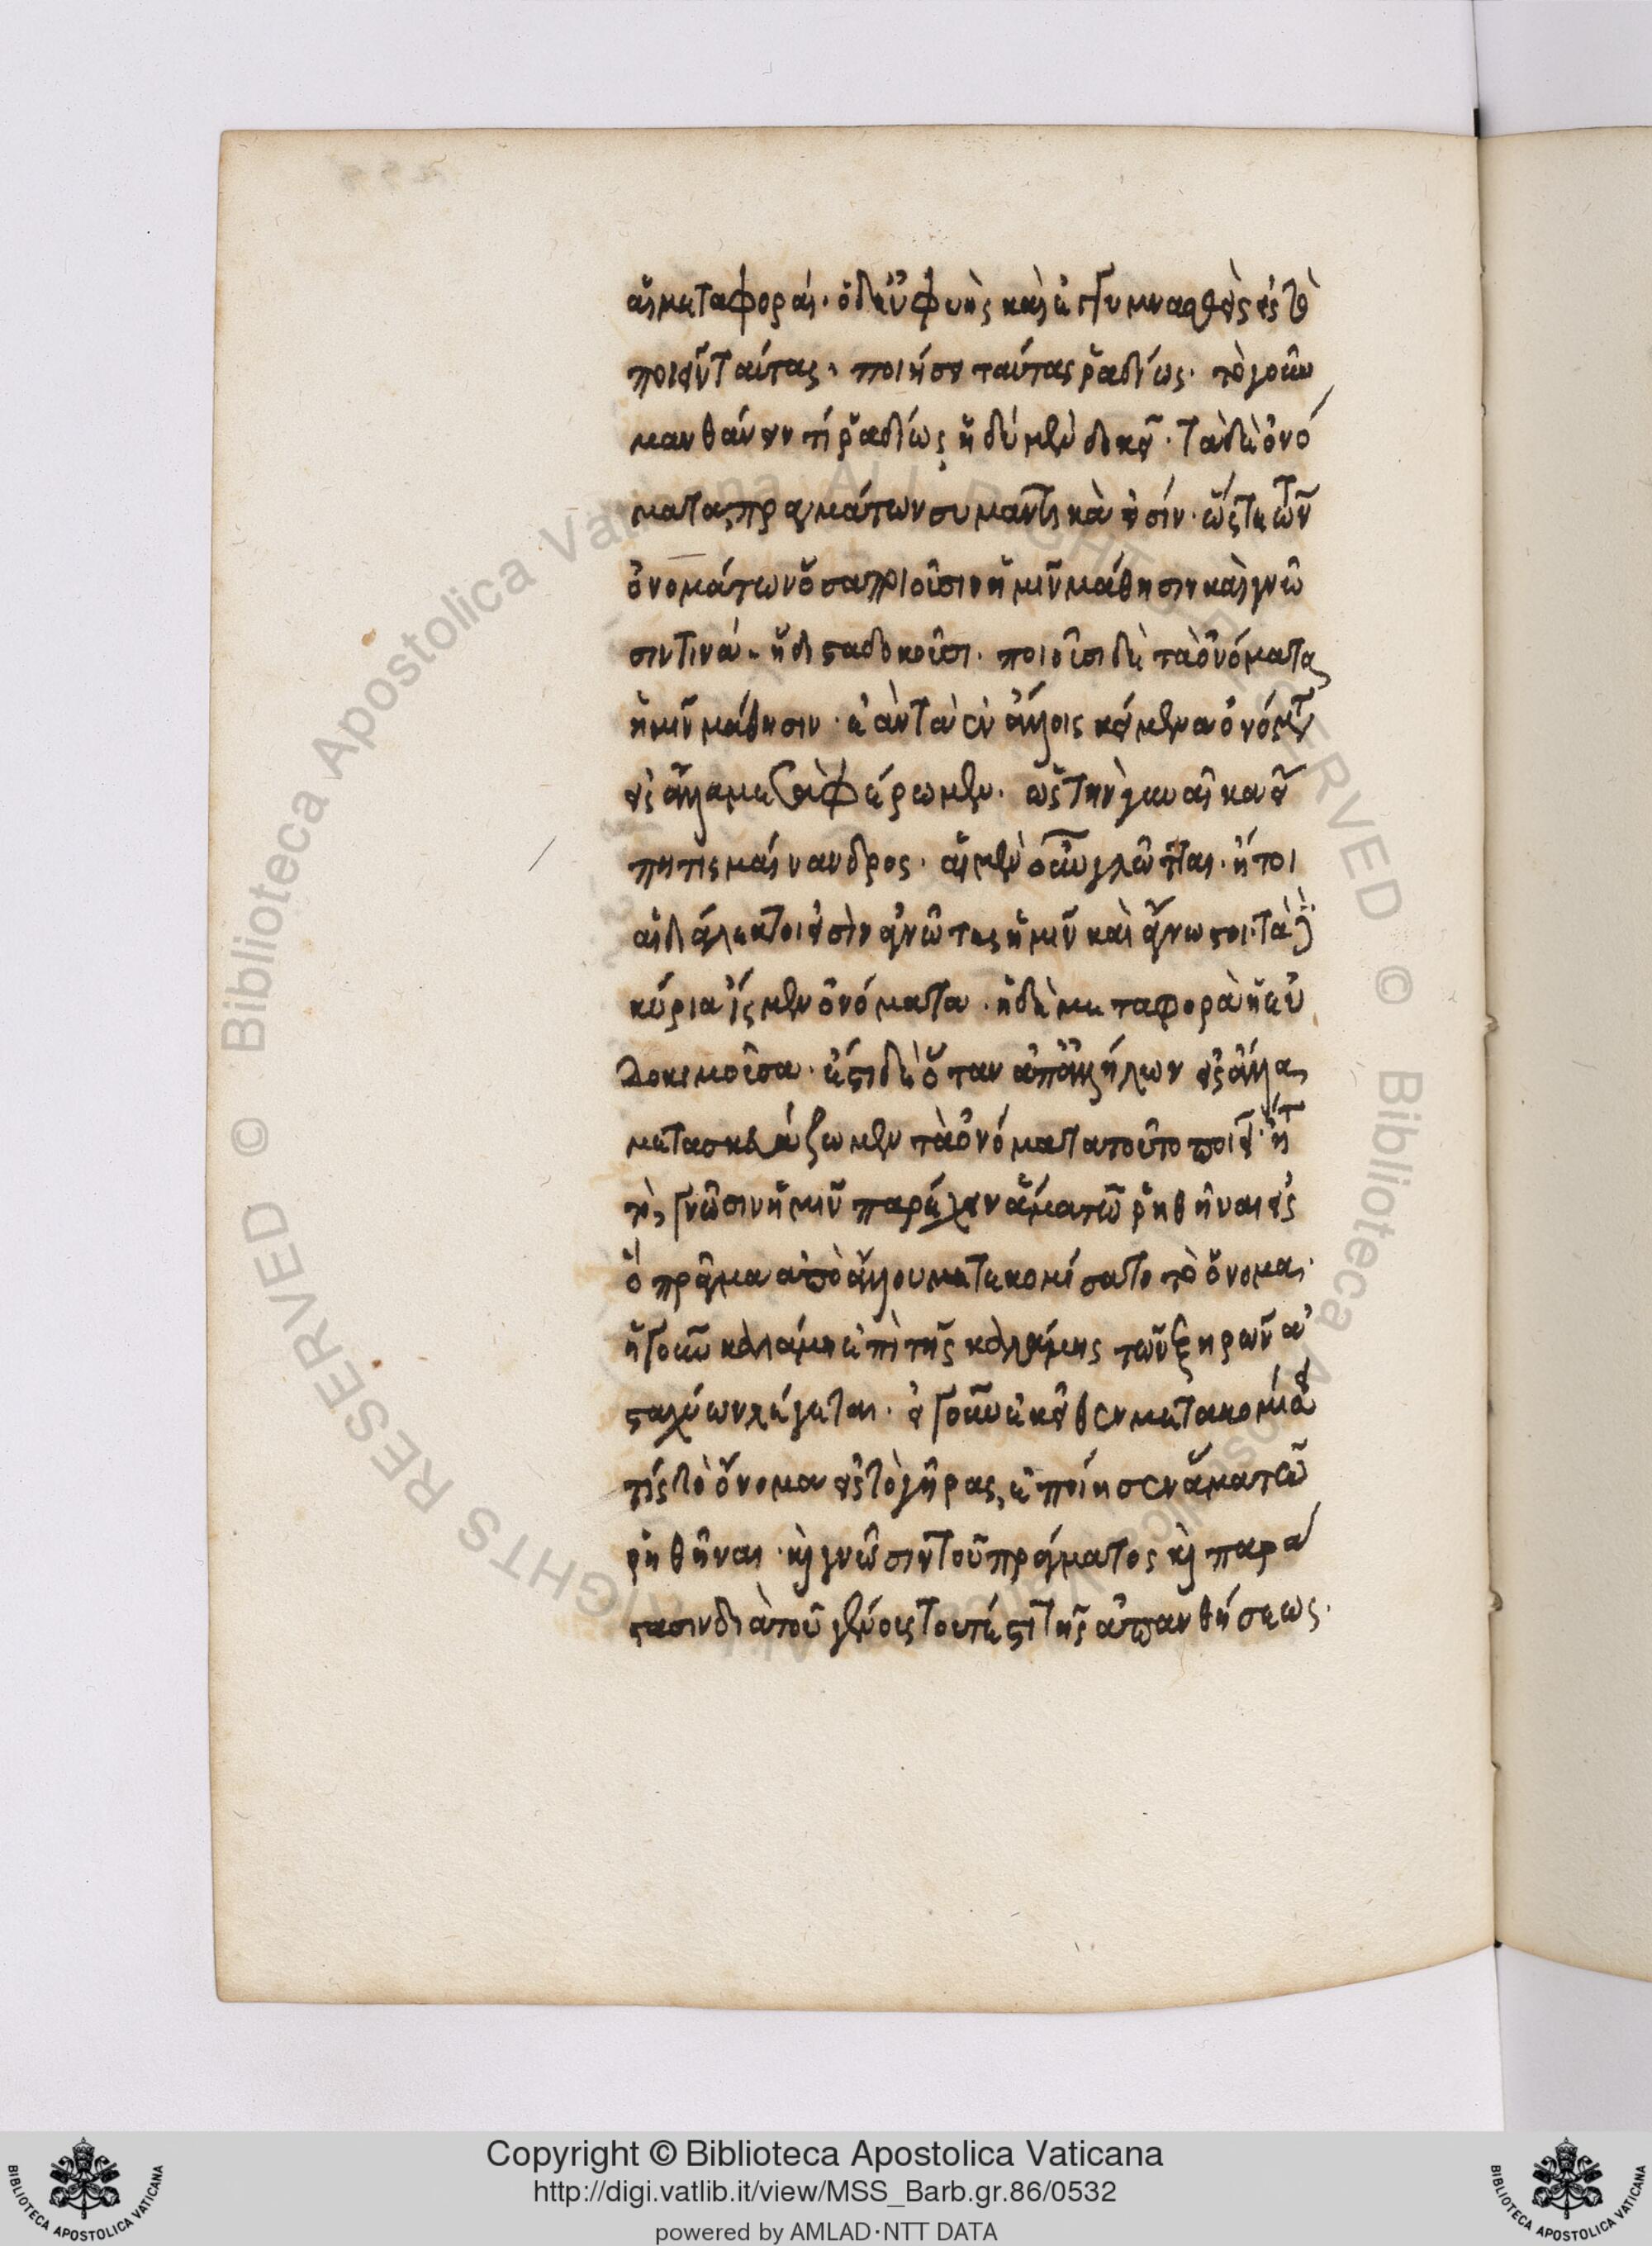 αἱ μεταφοραί· ὁ δὲ εὐφυὴς καὶ ἐγγυμνασθεὶς εἰς τὸ
ποιεῖν ταύτας, ποιήσει ταύτας ῥαδίως· τὸ γοῦν
μανθάνειν τί ῥαδίως ἡδύ μὲν δοκεῖ· τὰ δὲ ὀνό
ματα πραγμάτων συμαντικὰ εἰσίν· ὥστε τῶν
ὀνομάτων ὅσα ποιοῦσιν ἡμῖν μάθησιν καὶ γνῶ
σιν τινά, ἥδιστα δοκοῦσι· ποιοῦσι δὲ τὰ ὀνόματα
ἡμῖν μάθησιν· ἐὰν τὰ ἐν ἄλλοις κείμενα ὀνόματ
εἰς ἄλλα μεταφέρωμεν· ὡς τὴν γυναῖκα εἴ
πῃ τις μαίνανδρος· αἱ μὲν οὖν γλῶτται· ἤτοι
αἱ διάλεκτοι εἰσὶν ἀγνῶτες ἡμῖν καὶ ἄγνωστοι· τὰ δὲ
κύρια ἴσμεν ὀνόματα· ἡ δὲ μεταφορὰ ἡ εὐ
δοκιμοῦσα· ἔστι δὲ ὅταν ἀπ' ἀλλήλων εἰς ἄλλα
μετασκευάζωμεν τὰ ὀνόματα τοῦτο ποιεῖ·
γνῶσιν ἡμῖν παρέχειν ἅμα τῶ ῥηθῆναι εἰς
ὃ πρᾶγμα ἀπὸ ἄλλου μετεκομίσατο τὸ ὄνομα·
ἡ γοῦν καλάμη ἐπὶ τῆς καλάμης τῶν ξηρῶν ἀ
σταχύων λέγεται· εἰ γοῦν ἐκεῖθεν μετακομιάσει
τίς τὸ ὄνομα εἰς τὸ γῆρας, ἐποίησεν ἅμα τῶ
ῥηθῆναι· καὶ γνῶσιν τοῦ πράγματος καὶ παρά
στασιν διὰ τοῦ γένους τουτέστι τῆς ἀπανθήσεως·
Copyright © Biblioteca Apostolica Vaticana
http://digi.vatlib.it/view/MSS_Barb.gr.86/0532
powered by AMLAD·NTT DATA